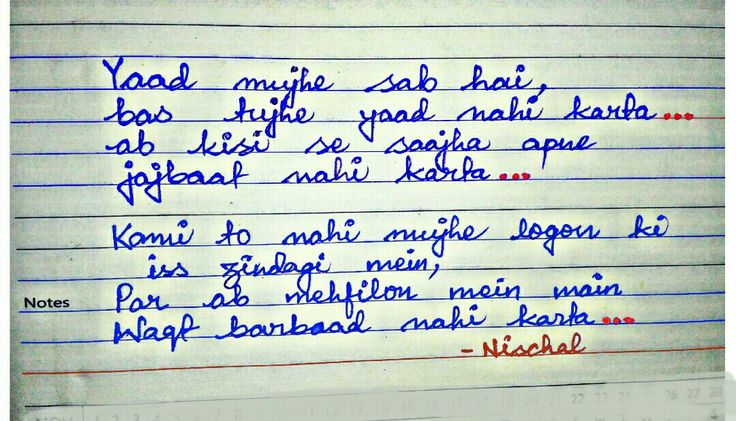 Yaad mujhe sab hai,
bas tujhe yaad nahi karta...
ab kisi se saajha apne
jajbaat nahi karta...
Kami to nahi mujhe logon ki
iss zindagi mein,
Notes
Par ab mehfilon mein main
Waqt barbaad nahi karta...
- Nischal